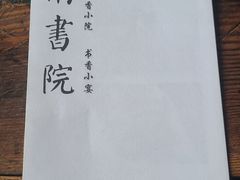 香小院 书香小宴
書院